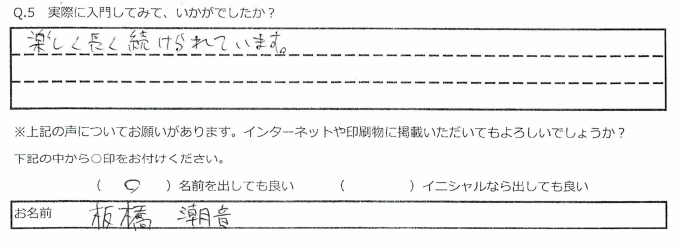 Q.5 実際に入門してみて、いかがでしたか？
楽しく長く続けられています。
※上記の声についてお願いがあります。インターネットや印刷物に掲載いただいてもよろしいでしょうか？
下記の中から○印をお付けください。
（ ○ ）名前を出しても良い （ ）イニシャルなら出しても良い
お名前 板橋 潮音